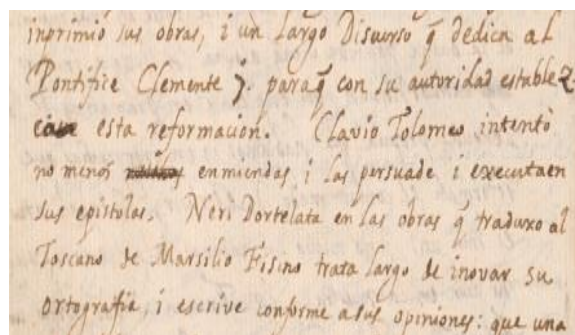 inprimiò sus obras, i un largo Discurso q̃ dedica al
Pontifice Clemente 7. paraq̃ con su autoridad establez
esta reformacion. Clavio Tolomeo intentò
no menos enmiendas i las persuade i executa en
sus epistolas. Neri Dortelata en las obras q̃ traduxo al
Toscano de Marsilio Fisino trata largo de inovar su
ortografia, i escrive conforme a sus opiniones: que una